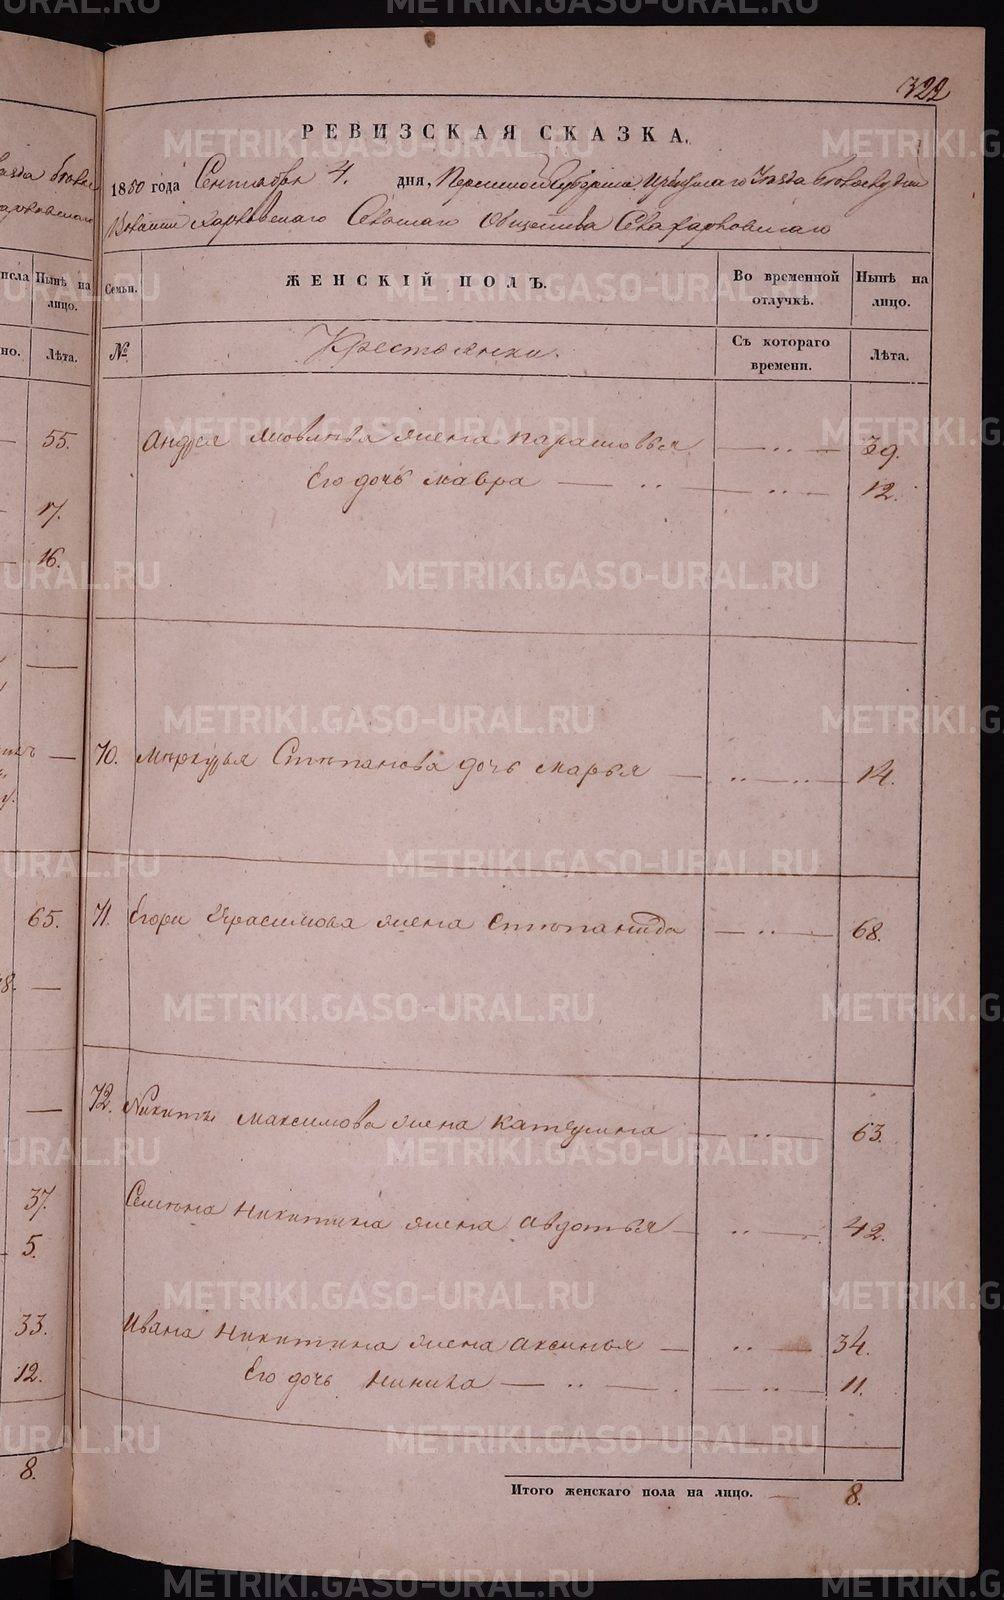 322
РЕВИЗСКАЯ СКАЗКА.
1850 года Сентября 4. дня, Пермской Губернии
Харковскаго Сельскаго Общества Села Харковскаго
Семьи. ЖЕНСКІЙ ПОЛЪ. Во временной отлучкѣ. Нынѣ на лицо.
№ Крестьянки. Съ котораго времени. Лѣта.
Андрея Яковлева жена Парасковья — 39.
Его дочь Мавра — 12.
70. Меркурья Степанова дочь Марья — 14.
71. Егора Герасимова жена Степанида — 68.
72. Никиты Максимова жена Катерина — 63.
Семена Никитина жена Авдотья — 42.
Ивана Никитина жена Аксинья — 34.
Его дочь — 11.
Итого женскаго пола на лицо. — 8.
Нынѣ на лицо.
Лѣта.
55.
17.
16.
65.
37.
5.
33.
12.
8.
METRIKI.GASO-URAL.RU